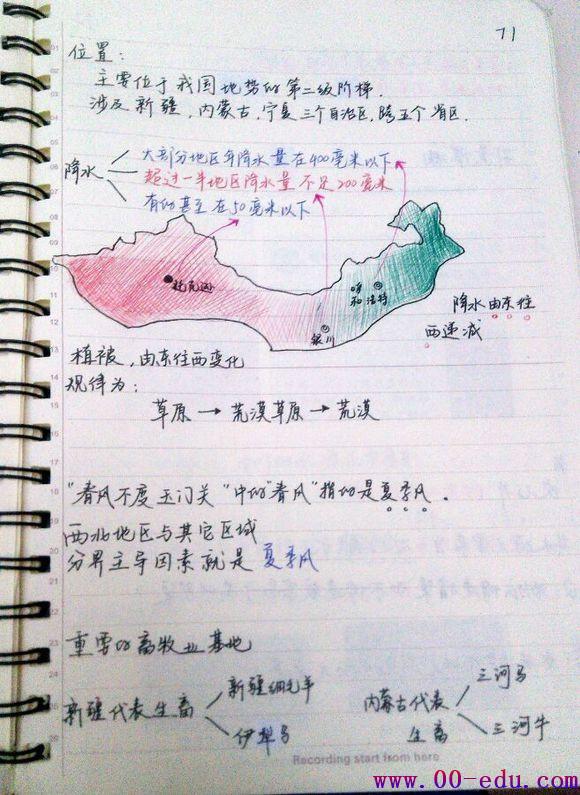 71
位置：
主要位于我国地势的第二级阶梯.
涉及新疆，内蒙古，宁夏三个自治区，跨五个省区.
大部分地区年降水量在400毫米以下
降水 超过一半地区降水量不足200毫米
有的甚至在50毫米以下
托克逊
呼和浩特
银川
降水由东往
西递减
植被，由东往西变化
规律为：
草原→荒漠草原→荒漠
"春风不度玉门关"中的"春风"指的是夏季风.
西北地区与其它区域
分界主导因素就是 夏季风
重要的畜牧业基地
新疆细毛羊
新疆代表生畜
伊犁马
三河马
内蒙古代表
生畜
三河牛
Recording start from here
www.00-edu.com